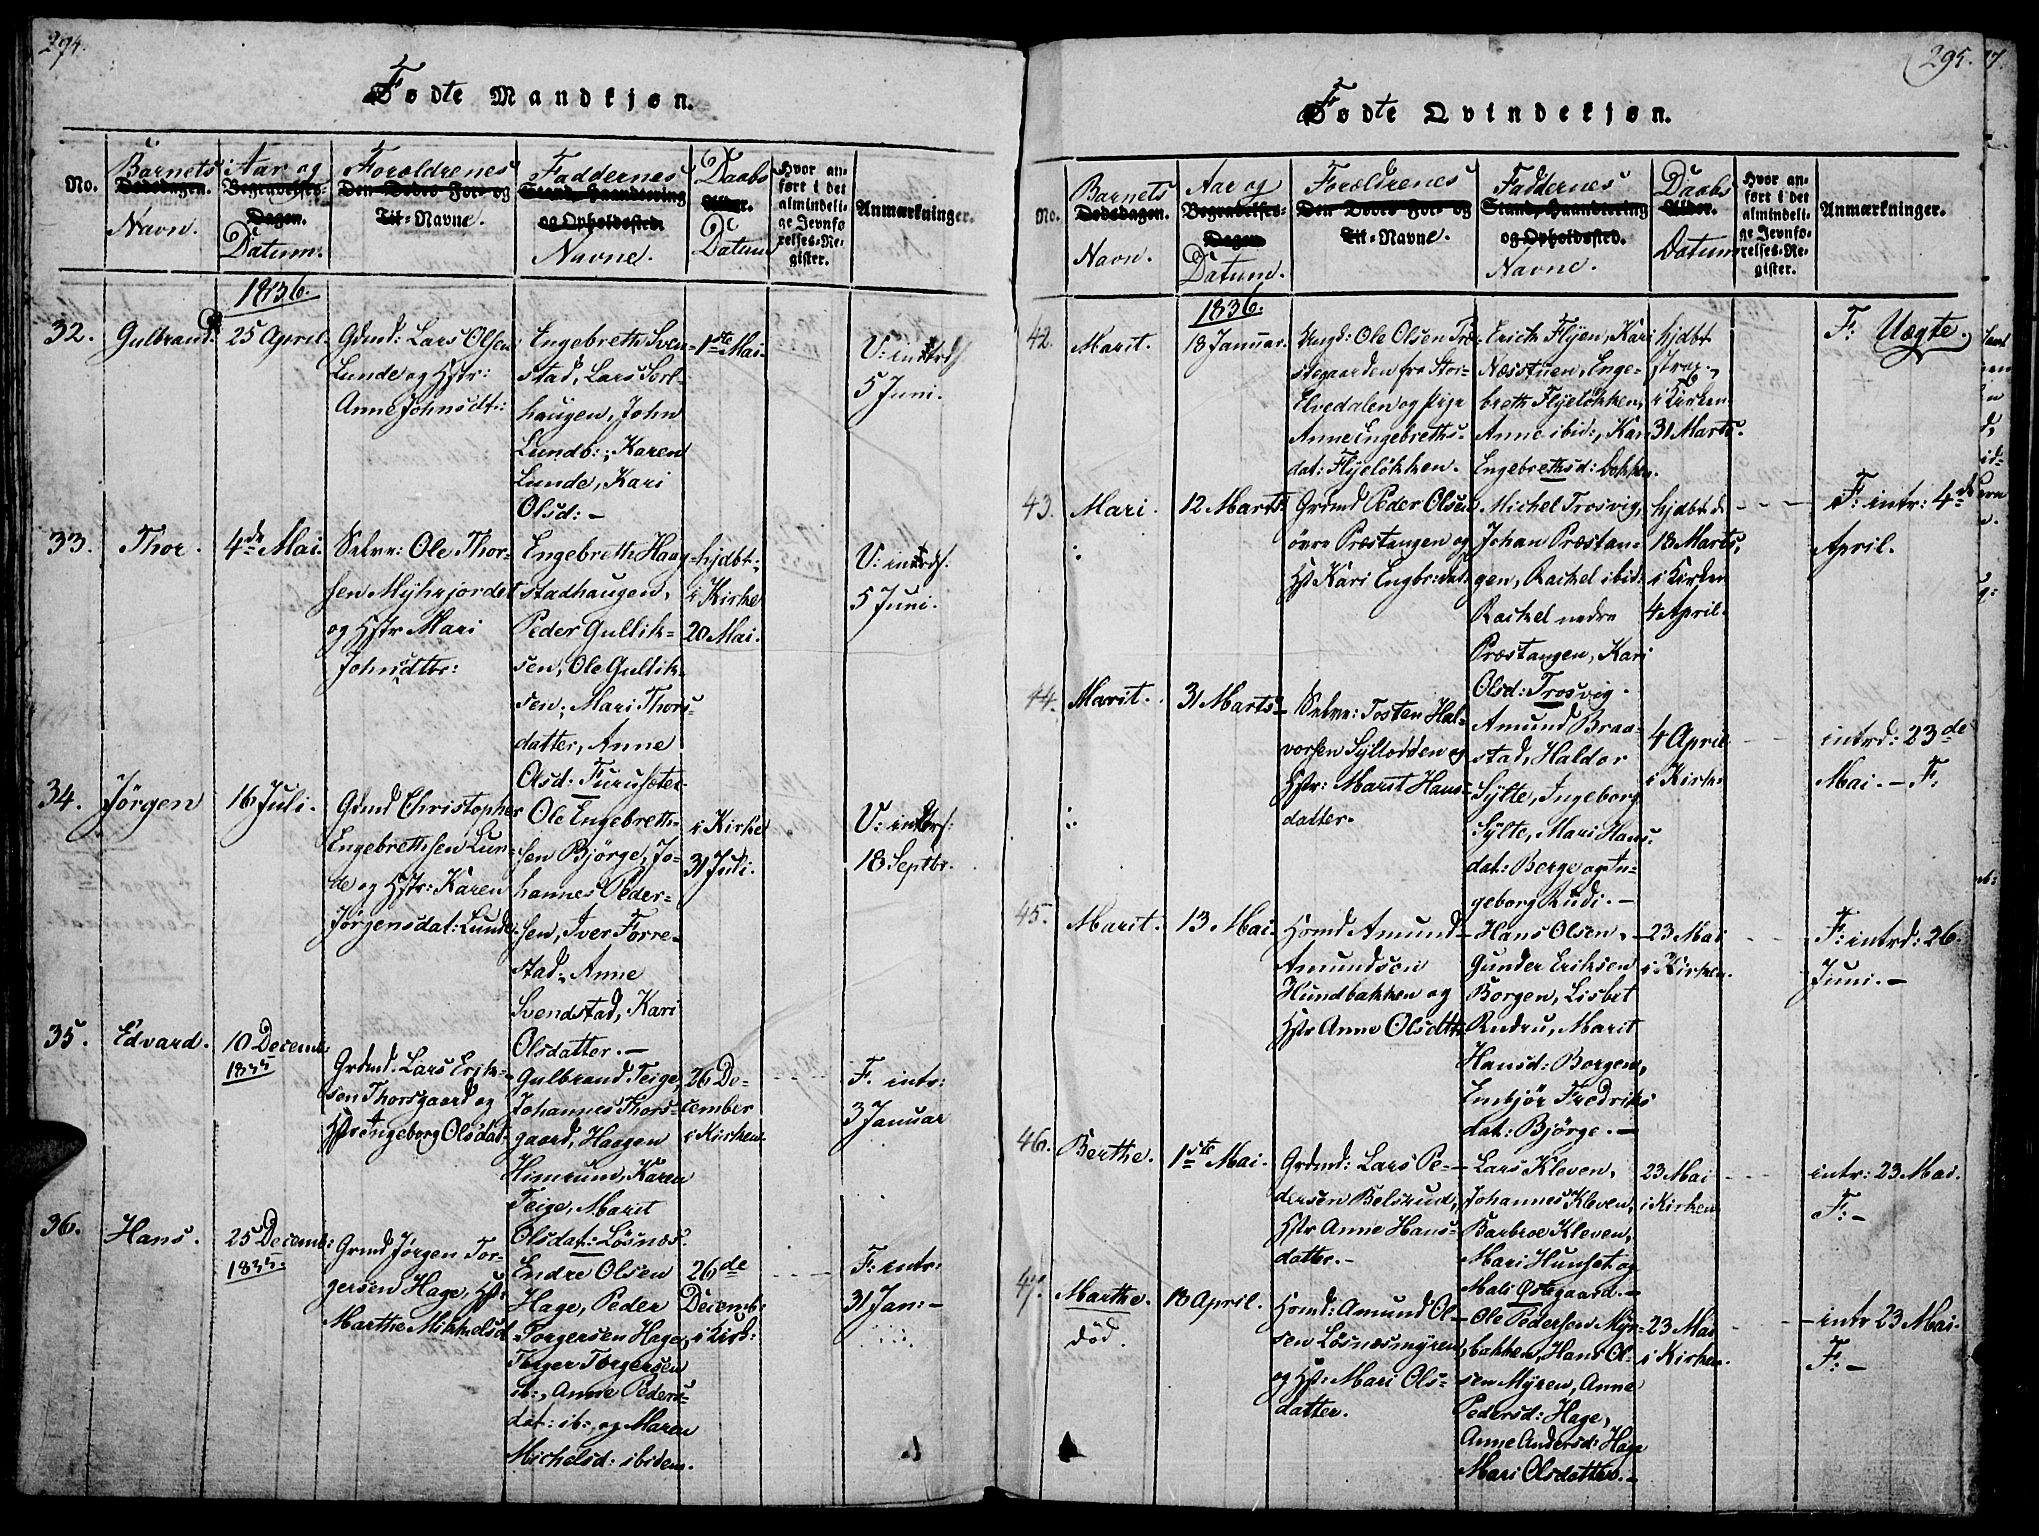 294.
Fødte Mandkjøn.
No.
Barnets
Dødsdagen.
Navn.
Aar og
Begravelses-
Dagen.
Datum.
Forældrenes
Den Dødes For- og
Til-Navne.
Faddernes
Stand, Haandtering
og Opholdssted.
Navne.
Daabs
Alder.
Datum
Hvor an-
ført i det
almindeli-
ge Jevnfø-
relses-Re-
gister.
Anmærkninger.
1836.
32.
Gulbrand
25 April.
Gdmd: Lars Olsen
Lunde og Hstr:
Anne Johnsdtr:
Engebreth Sven-
stad, Lars Sorl-
haugen, John
Lundb:, Karen
Lunde, Kari
Olsd: -
1ste Mai
V: introd
5 Juni.
33.
Thor.
4de Mai.
Selve: Ole Thor-
sen Myhrjordet
og Hstr Mari
Johnsdtr:
Engebreth Haag-
stadhaugen,
Peder Gullik-
sen, Ole Gullik-
sen, Mari Thors-
datter, Anne
Olsd: Furusæter
hjdbt:
i Kirke
20 Mai.
V: introd:
5 Juni.
34.
Jörgen
16 Juli.
Gdmd Christopher
Engebrethsen Lun-
de og Hstr: Karen
Jörgensdat: Lunde
Ole Engebreth-
sen Bjørge, Jo-
hannes Peder-
sen, Iver Forre-
stad, Anne
Svendstad, Kari
Olsdatter. -
i Kirke
31 Juli.
V: intrd:
18 Septbr.
35.
Edvard.
10 Decemb
1835
Grdmd. Lars Erik-
sen Thorsgaard og
Hstr Ingeborg Olsdat.
Gulbrand Teige,
Johannes Thors-
gaard, Haagen
Himrund, Karen
Teige, Marit
Olsdat: Løsnæs.
26 De-
cember
i Kirken.
F. intr:
3 Januar
36.
Hans.
25 Decemb:
1835.
Grmd Jörgen Tor-
gersen Hage, Hst:
Marthe Mikkelsd
Endre Olsen
Hage, Peder
Torgersen Hage,
Torger Torgersen
ib:, Anne Peders-
dat: ib:, og Maren
Michelsd: ibidem.
26de
Decemb:
i Kirk:
F: intr:
31 Jan: -
295.
Fødte Qvindekjøn.
No.
Barnets
Dødsdagen.
Navn.
Aar og
Begravelses-
Dagen
Datum.
Forældrenes
Den Dødes For- og
Til-Navne.
Faddernes
Stand, Haandtering
og Opholdssted.
Navne.
Daabs
Alder.
Datum
Hvor an-
ført i det
almindeli-
ge Jevnfø-
relses-Re-
gister.
Anmærkninger.
1836.
42.
Marit.
18 Januar.
Ungd: Ole Olsen Træ-
stegaarden fra Stor-
Elvedalen og pige
Anne Engebreths-
dat: Flyeløkken.
Erich Flyen, Kari
Næsstuen, Enge-
breth Flyeløkken,
Anne ibid:, Kari
Engebrethsd: Dokken.
hjdbt
strax,
i Kirken
31 Marts.
F: Uægte.
43.
Mari.
12 Marts
Grdmd Peder Olsen
övre Præstangen og
Hst Kari Engbr:dat.
Michel Trosvig,
Johan Præstan-
gen, Rachel ibid:
Rachel nedre
Præstangen, Kari
Olsd: Trosvig.
hjdbt d
13 Marts,
i Kirken
4 April.
F: intr: 4de
April.
44.
Marit.
31 Marts
Selve: Tosten Hal-
vorsen Syltedøen og
Hstr: Marit Hans-
datter.
Amund Braa-
stad, Haldor
Sylte, Ingeborg
Sylte, Mari Hans-
dat: Berge og In-
geborg Rudi. -
4 April
i Kirk:
intrd: 23de
Mai. - F:
45.
Marit.
13 Mai
Homd Amund
Amundsen
Hundbakken og
Hstr Anne Olsdtr
Hans Olsen,
Gunder Eriksen
Borgen, Lisbet
Rudru, Marit
Hansd: Borgen,
Embjör Fredriks
dat: Bjørge. -
23 Mai
i Kirken.
F: intrd: 26.
Juni. -
46.
Berthe.
1ste Mai.
Grdmd: Lars Pe-
dersen Belsrud,
Hstr Anne Hans-
datter. -
Lars Kleven,
Johannes Kleven,
Barbroe Kleven,
Mari Hunset og
Mali Østegaard. -
23 Mai
i Kirken
intr: 23 Mai.
F: -
47.
Marthe.
död.
13 April.
Homd: Amund Ol-
sen Løsnæsmyren,
og Hst: Mari Ols-
datter.
Ole Pedersen Myr-
bakken, Hans Ol-
sen Myren, Anne
Pedersd: Hage,
Anne Andersd: Hage
Mari Olsdatter. -
23 Mai
i Kirken.
intr 23 Mai.
F: -